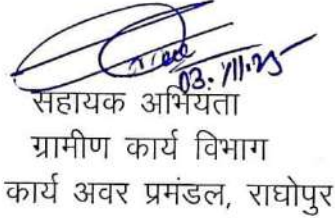 03.11.25
सहायक अभियंता
ग्रामीण कार्य विभाग
कार्य अवर प्रमंडल, राघोपुर